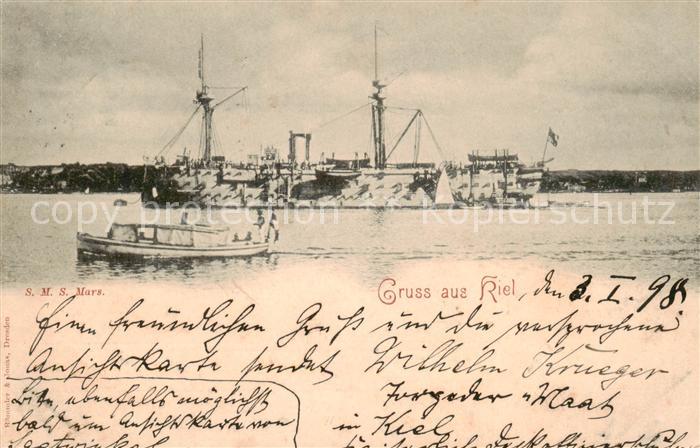 copyprotection Kopierschutz
S. M. S. Mars.
Gruss aus Kiel, den 3. I. 98
Einen freundlichen Gruß und die versprochene
Ansichtskarte sendet Wilhelm Krueger
Torpeder-Maat
in Kiel
Bitte, ebenfalls möglichst
bald um Ansichtskarte von
Dresden